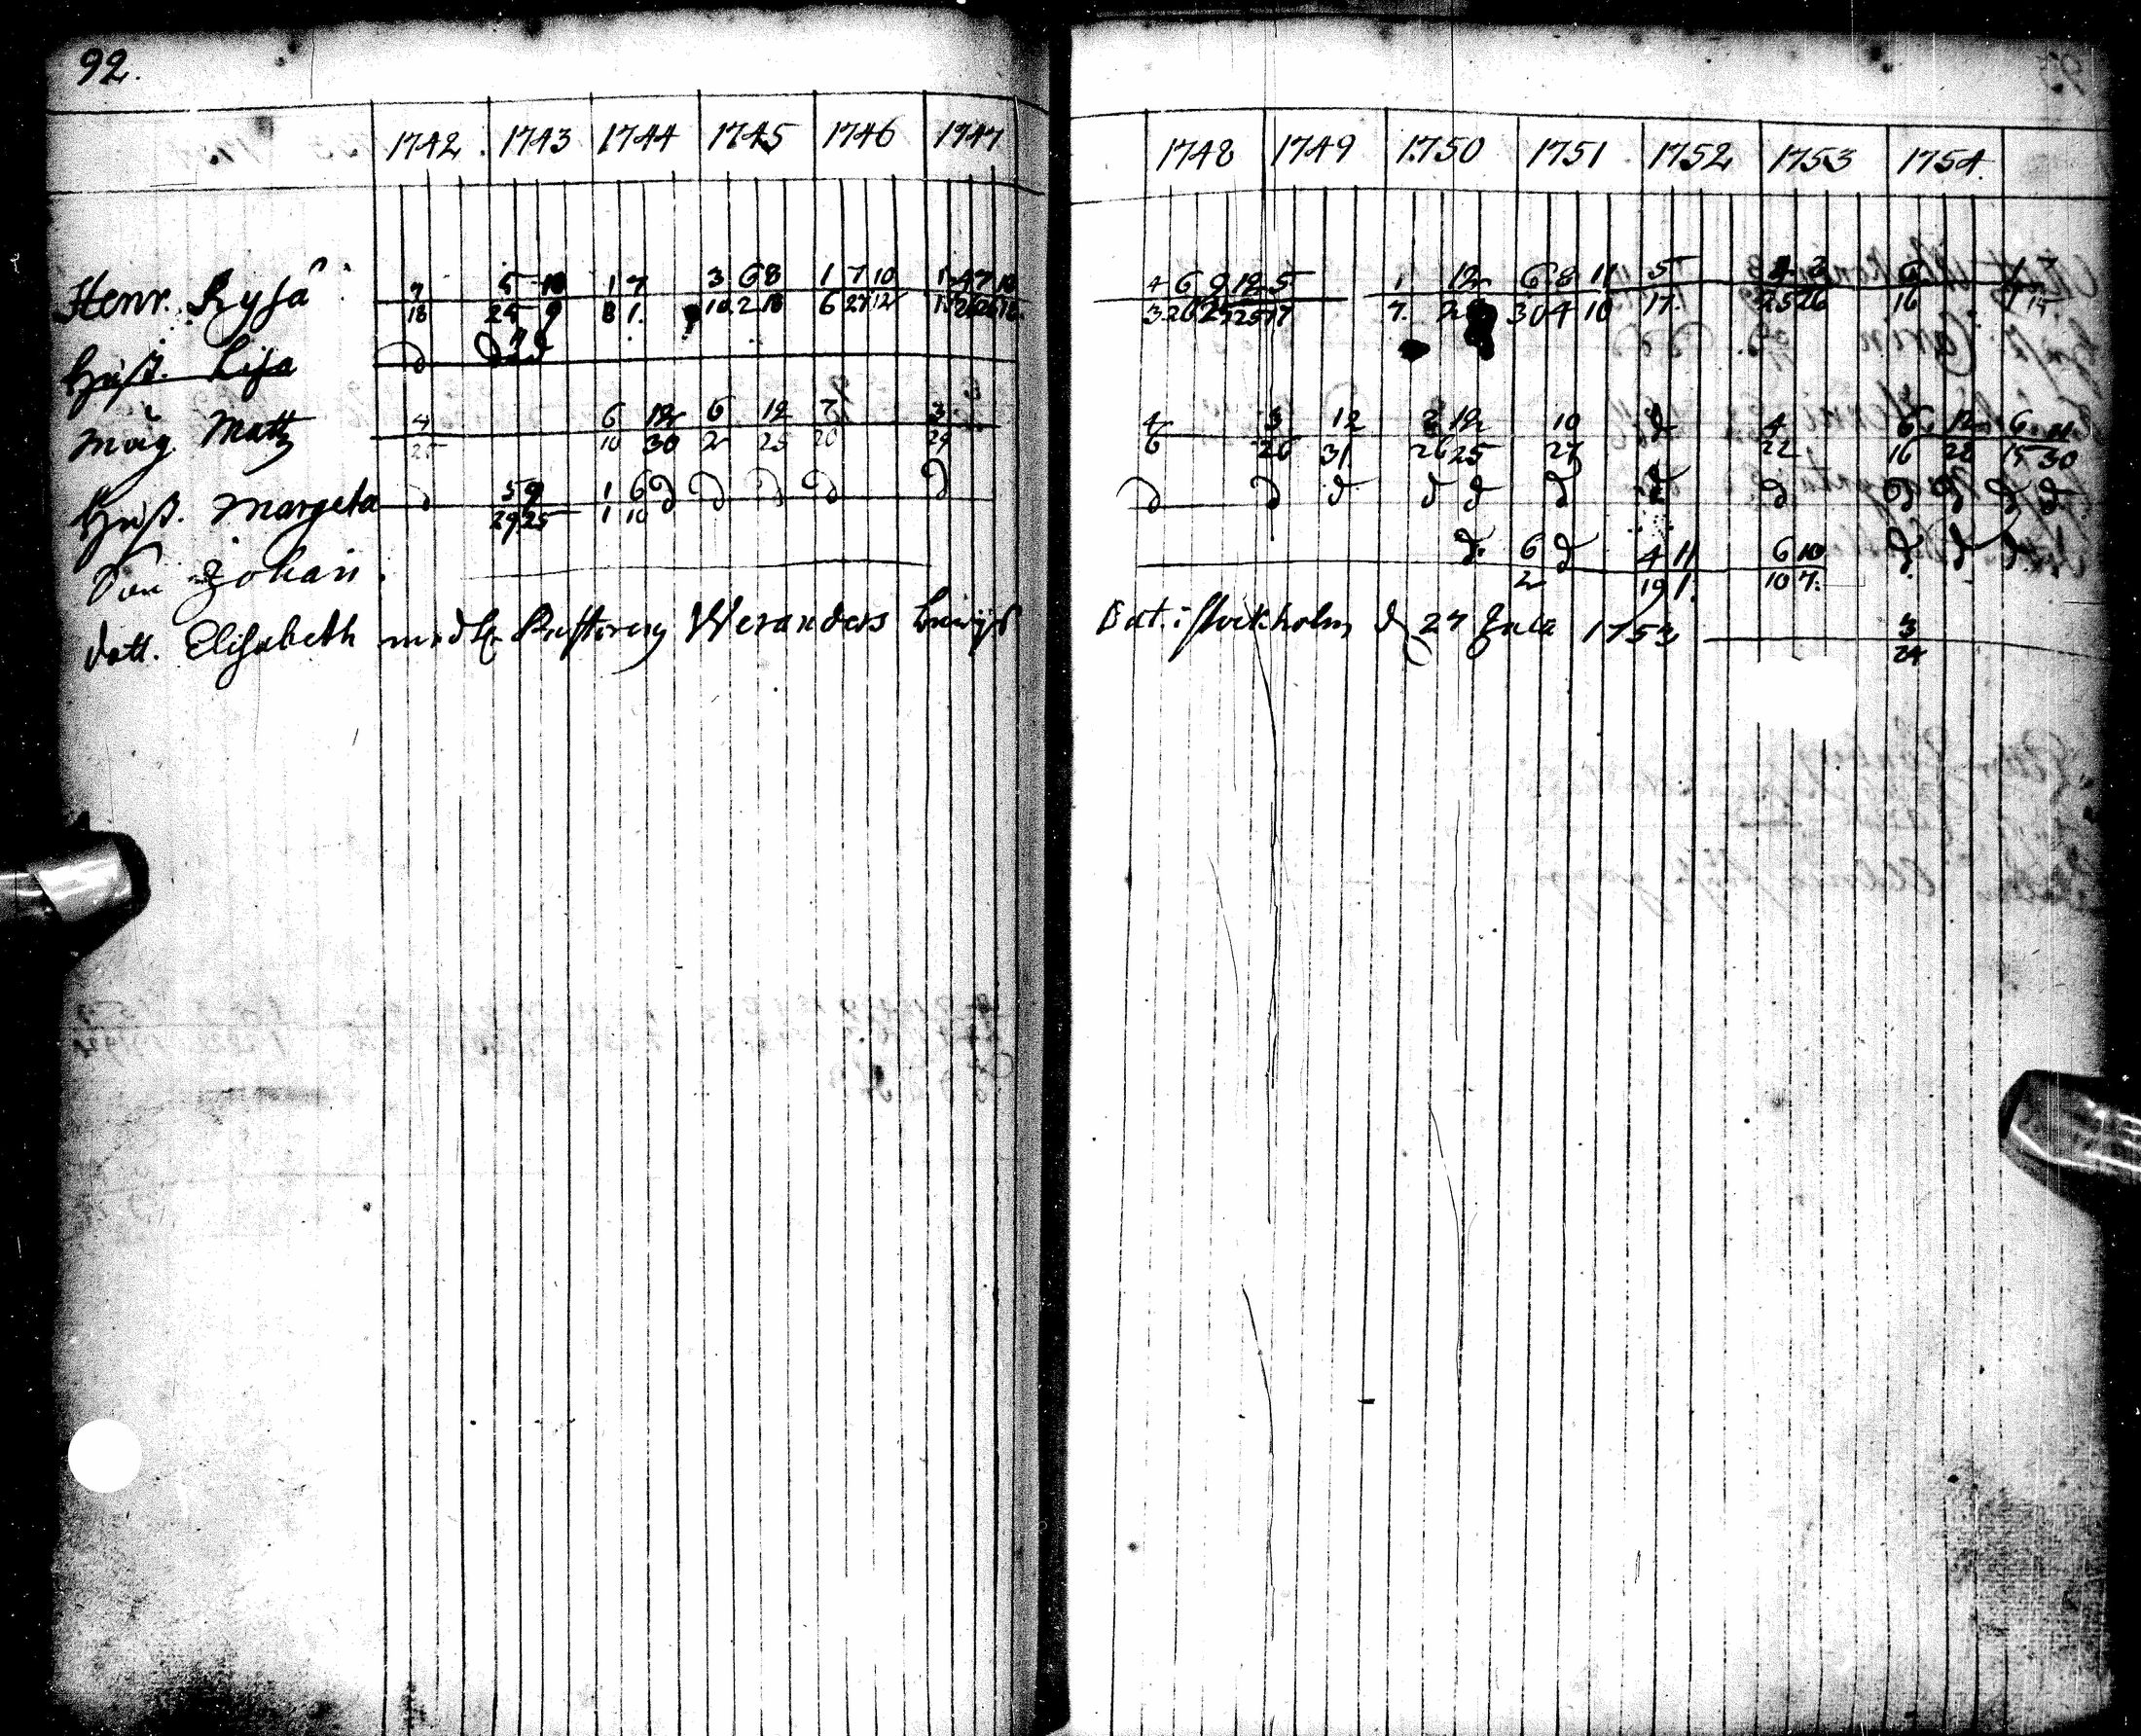 92.
1742. 1743 1744 1745 1746 1747 1748 1749 1750 1751 1752 1753 1754.
Henr. Rysä
7 5 10 1 7 3 6 8 1 7 10 1 4 7 10 4 6 9 12 5 1. 12 6 8 11 5
18 24 9 8 1. 10 2 18 6 27 12 3 20 29 25 17 7. 30 4 10 17. 25 26 16
Hust. Lisa
måg Matts
4 6 12 6 12 7 3 4 3 12 2 12 10 d 4 6 12 6 11
25 10 30 2 25 20 29 6 26 31 26 25 27 22 16 26 15 30
Hust. Margeta d 5 9 1 6 d d d d d d d d d d d d d d d d d
29 25 1 10
Son Johan. d. 6 d 4 11 6 10 d d d
2 19 1. 10 7.
dott. Elisabeth med Hr Weranders bewijs Dat. i Stockholm d 27 1753 3
24